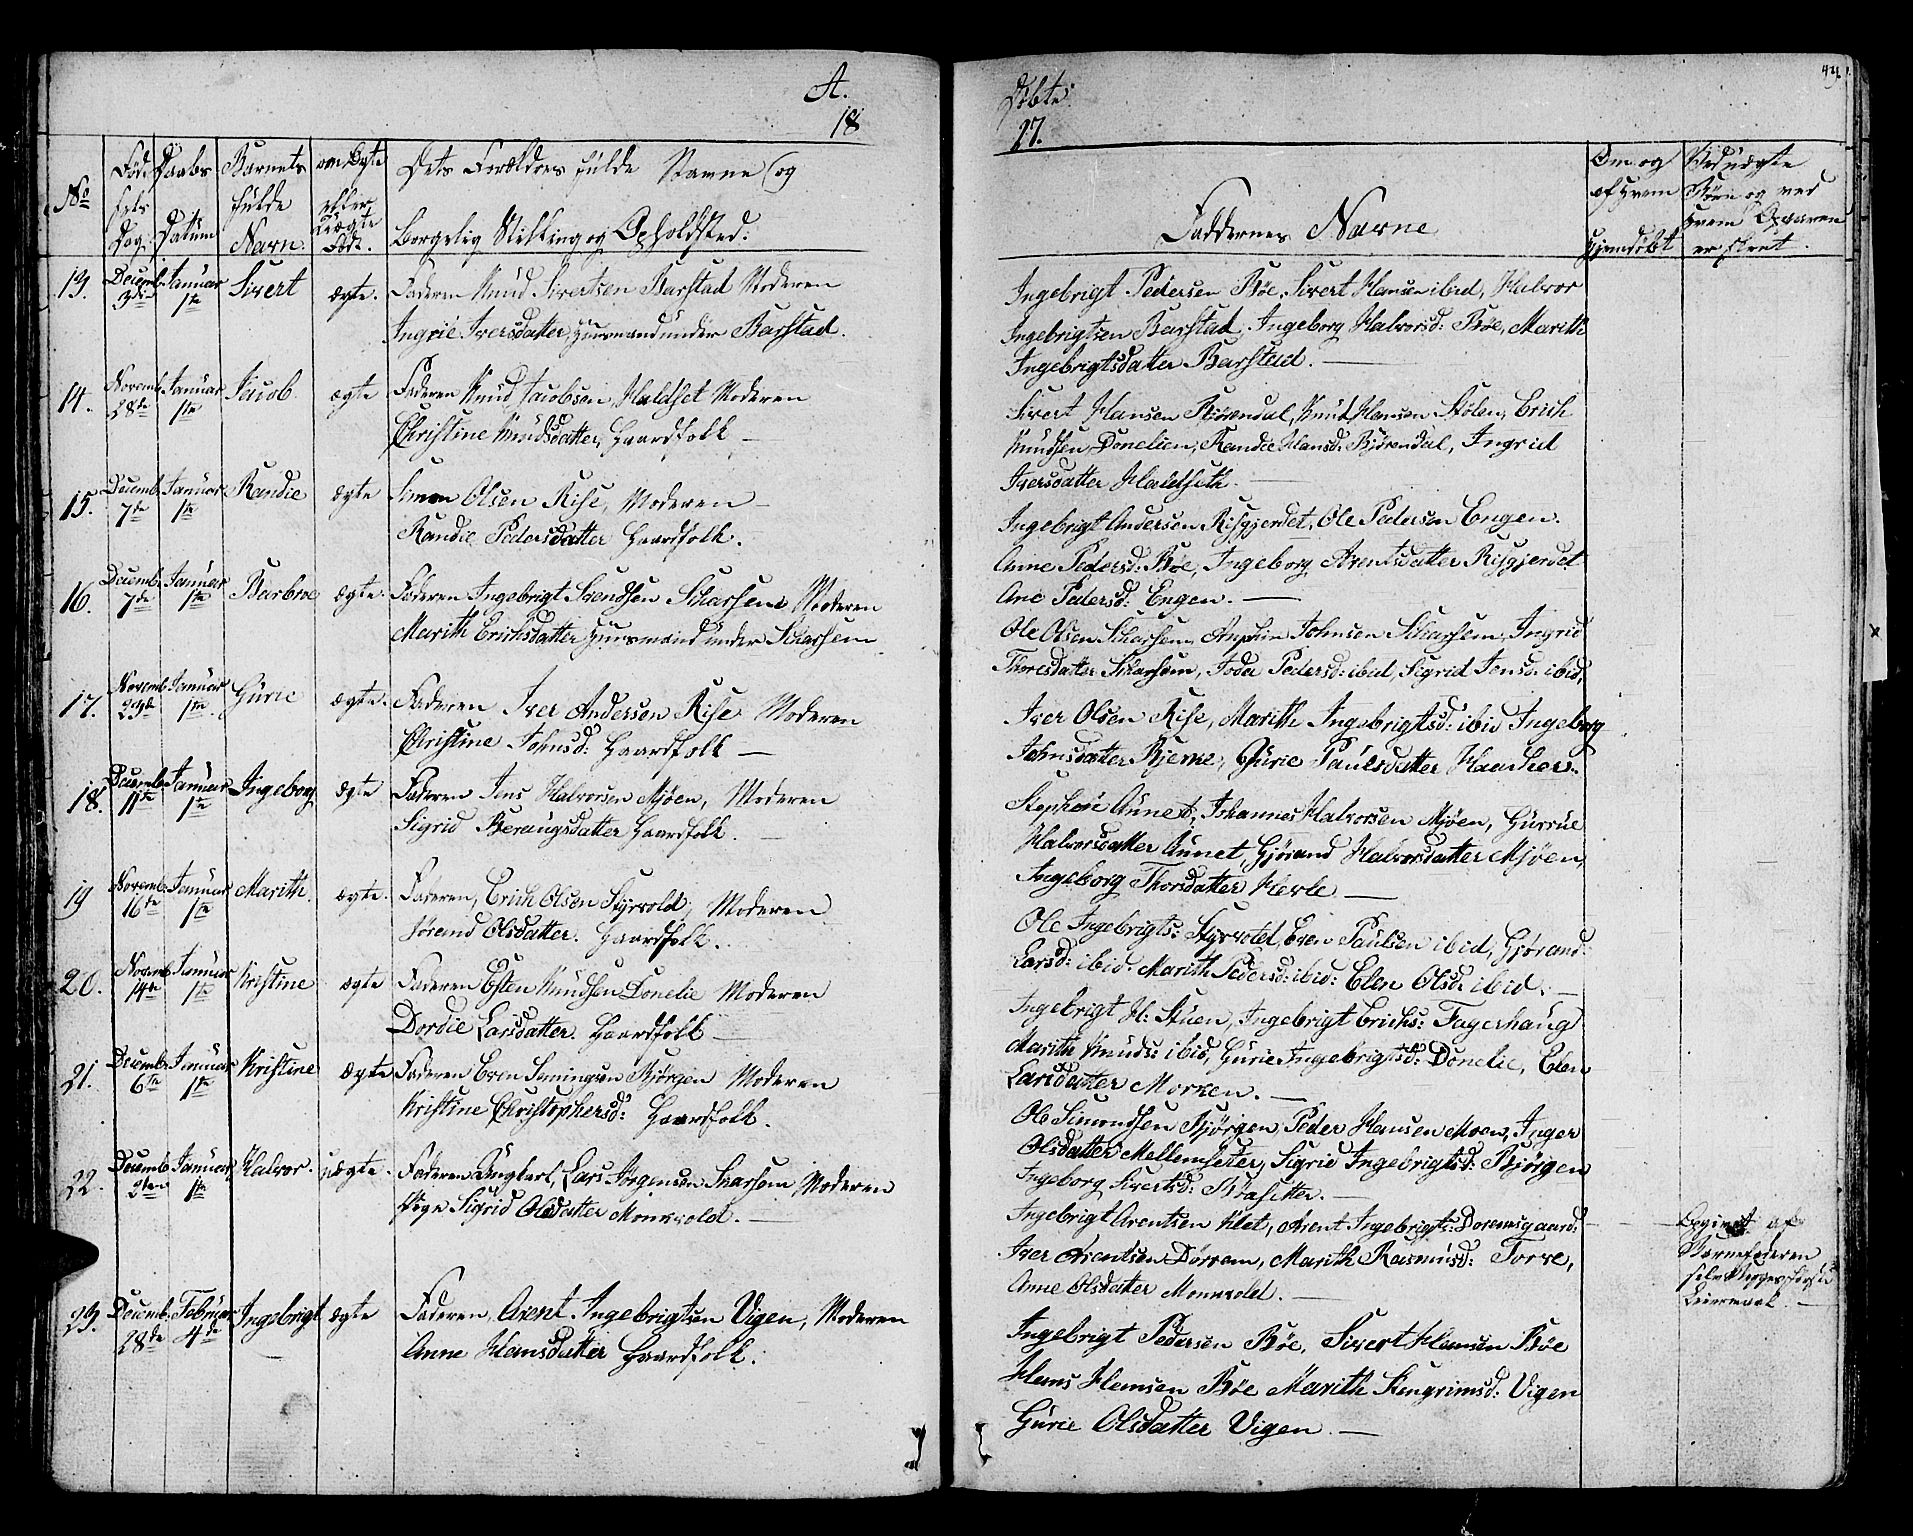 A.
18
No
Fødselsdag
Daabs Datum
Barnets fulde Navn
om ægte eller Uægte Født.
Dets Forældres fulde Navne og
Borgelig Stilling og Opholdsted:
13. Decemb: 3de Januar 1te Sivert ægte. Faderen Knud Sivertsen Barstad Moderen
Ingrie Iversdatter, Huusmand under Barstad.
14. Novemb: 28de Januar 1te Jacob ægte Faderen Knud Jacobsen, Haldset Moderen
Christine Knudsdatter, Gaardfolk —
15. Decemb. 7de Januar 1te Randie ægte Simen Olsen Rise, Moderen
Randie Pedersdatter Gaardfolk.
16. Decemb. 7de Januar 1te Barbroe ægte. Faderen Ingebrigt Svendsen Skarsem Moderen
Marith Erichsdatter, Huusmand under Skarsem
17. Novemb 23de Januar 1te Gurie ægte. Faderen Iver Andersen Rise Moderen
Christine Johnsd: Gaardfolk —
18. Decemb 11te Januar 1te Ingeborg ægte Faderen Jens Halvorsen Mjøen, Moderen
Sigrid Beraugsdatter Gaardfolk. —
19 Novemb. 16de Januar 1te Marith. ægte. Faderen, Erich Olsen Styrvold, Moderen
Jørand Olsdatter. Gaardfolk.
20. Novemb 14de Januar 1te Kristine ægte Faderen Esten Knudsen Donelie Moderen
Dordie Larsdatter. Gaardfolk —
21. Decemb. 6te Januar 1te Kristine ægte Faderen Even Semingsen Bjørgen Moderen
Kristine Christophersd: Gaardfolk.
22. Decemb 2den Januar 1te Halvor. uægte. Faderen Ungkarl, Lars Jørgensen Skarsem Moderen
Pige Sigrid Olsdatter Monsvold. —
23. Decemb. 28de Februar 4de Ingebrigt ægte Faderen, Arent Ingebrigtsen Vigen, Moderen
Anne Hansdatter Gaardfolk.
44.
Døbte
27.
Faddernes Navne
Om og af Hvem hjemdøbt
Ved uægte Børn og ved hvem Opgaven er skeet.
Ingebrigt Pedersen Bøe, Sivert Hansen ibid, Halvor
Ingebrigtsen Barstad. Ingeborg Halvorsd: Bøe, Marith
Ingebrigtsdatter Barstad. —
Sivert Hansen Bjørndal, Knud Hansen Stølen, Erich
Knudsen Donelien, Randie Hansd: Bjørendal, Ingrid
Iversdatter Haldseth. —
Ingebrigt Andersen Risgjerdet, Ole Pedersen Engen.
Anne Pedersd: Bøe, Ingeborg Arentsdatter Risgjerdet
Ane Pedersd: Engen. —
Ole Olsen Skarsem, Johnsen Skarsem, Ingrid
Thoresdatter Skarsem, Pedersd: ibid, Sigrid Jonsd: ibid,
Iver Olsen Rise, Marith Ingebrigtsd: ibid Ingeborg
Johnsdatter Bjerke, Gurie Paulsdatter Haarker
Stephen Aunet, Johannes Halvorsen Mjøen, Gurrue
Halvorsdatter Aunet, Gjørand Halvorsdatter Mjøen,
Ingeborg Thorsdatter Hevle —
Ole Ingebrigts: Styrvold, Even Paulsen ibid, Gjørand
Larsd: ibid. Marith Pedersd: ibid: Elen Olsd: ibid. —
Ingebrigt H: Stuen, Ingebrigt Erichs: Fagerhaug
Marith Knuds: ibid, Gurie Ingebrigtsd: Donelie, Elen
Larsdatter Morken. —
Ole Simondsen Bjørgen, Peder Hansen Moen, Inger
Olsdatter Mellemseter, Sigrid Ingebrigtsd: Bjørgen
Ingeborg Sivertsd: Bøasetter. —
Ingebrigt Arentsen Klet, Arent Ingebrigts: Doremsgaard.
Iver Arentsen Dørrem, Marith Rasmusd: Torve,
Anne Olsdatter Monsvold. —
Opgivet af
Barnefaderen
selv Begges første
Leiermaal. —
Ingebrigt Pedersen Bøe, Sivert Hansen Bøe
Hans Hansen Bøe Marith Stengrimsd: Vigen
Gurie Olsdatter Vigen. —